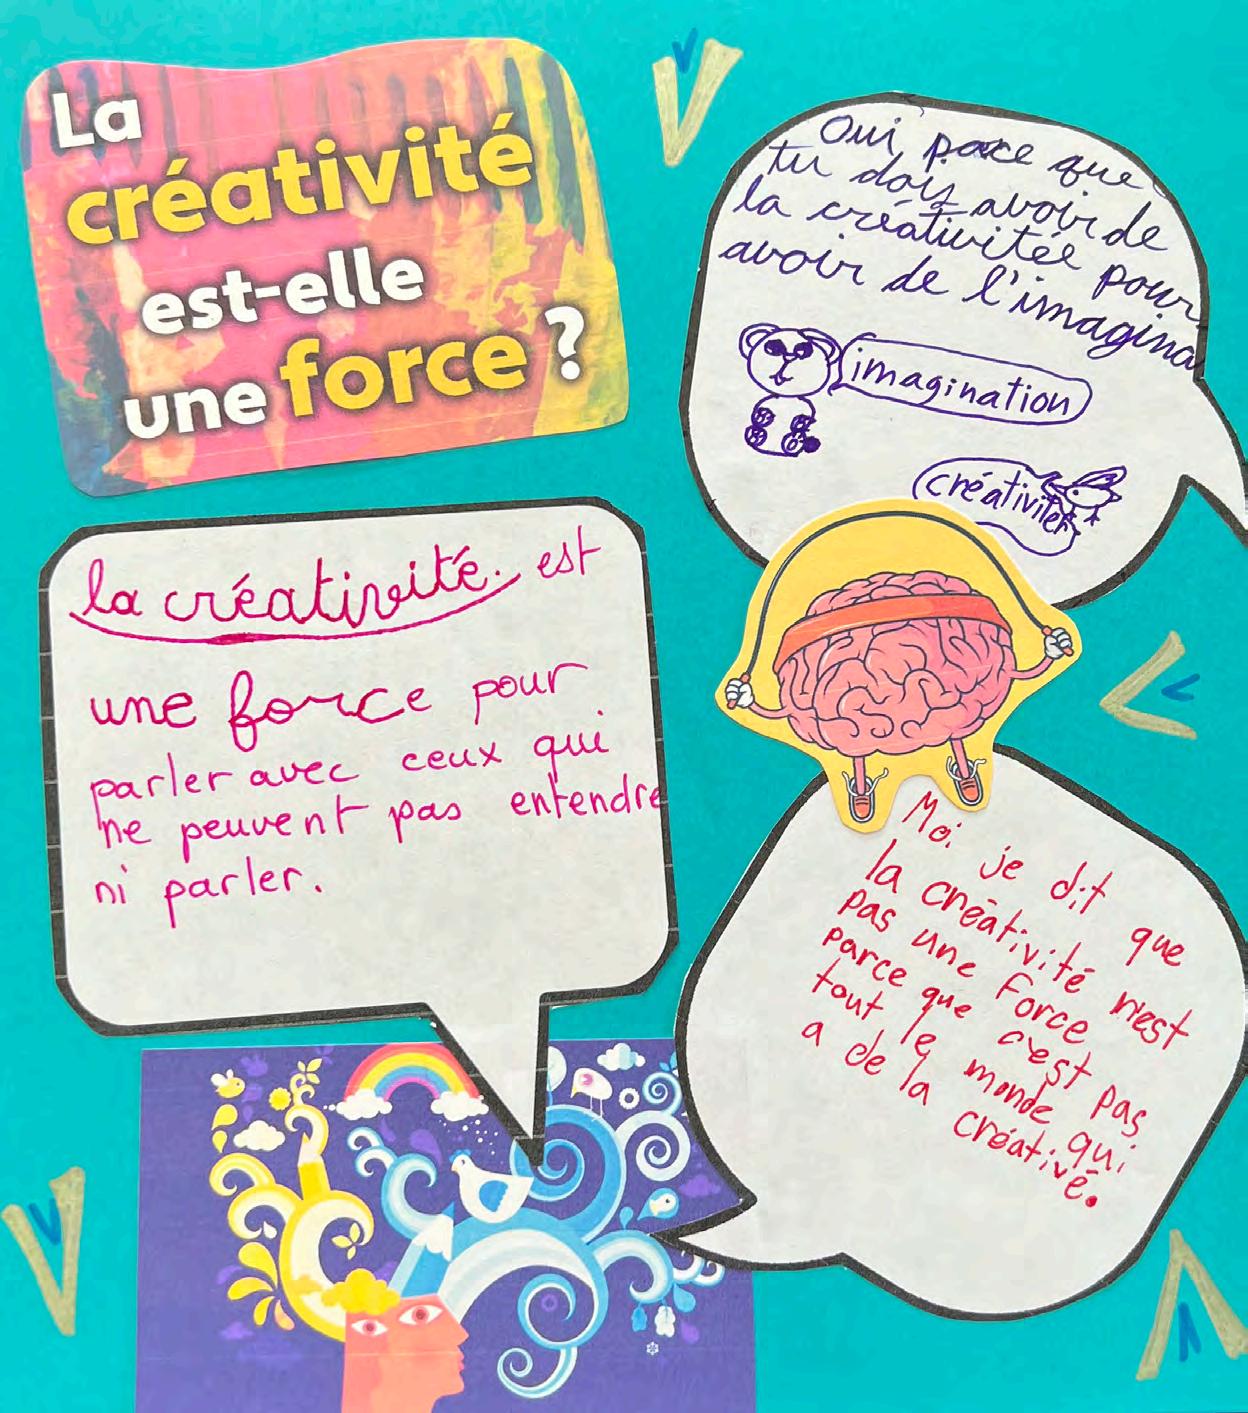 La
créativité
est-elle
une force ?
Oui parce que
tu dois avoir de
la créativitée pour
avoir de l'imagina
imagination
créativiter
la créativité. est
une force pour
parler avec ceux qui
ne peuvent pas entendre
ni parler.
Moi je dit que
la créativité n'est
pas une force
parce que c'est pas
tout le monde qui
a de la créativé.